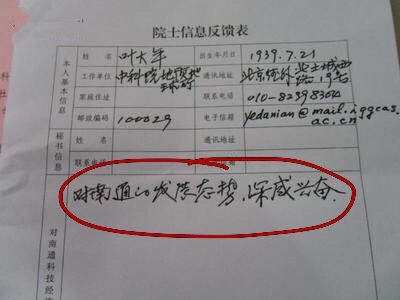 院士信息反馈表
本人基本信息
姓名 叶大年 出生年月日 1939.7.21
工作单位 中科院地质地球所 通讯地址 北京德外北土城西路19号
家庭住址 联系电话 010-82398304
邮政编码 100029 电子信箱 yedanian@mail.iggcas.ac.cn
秘书信息
姓名 通讯地址
联系电话 信箱
对南通的发展态势,深感兴奋.
对南通科技经